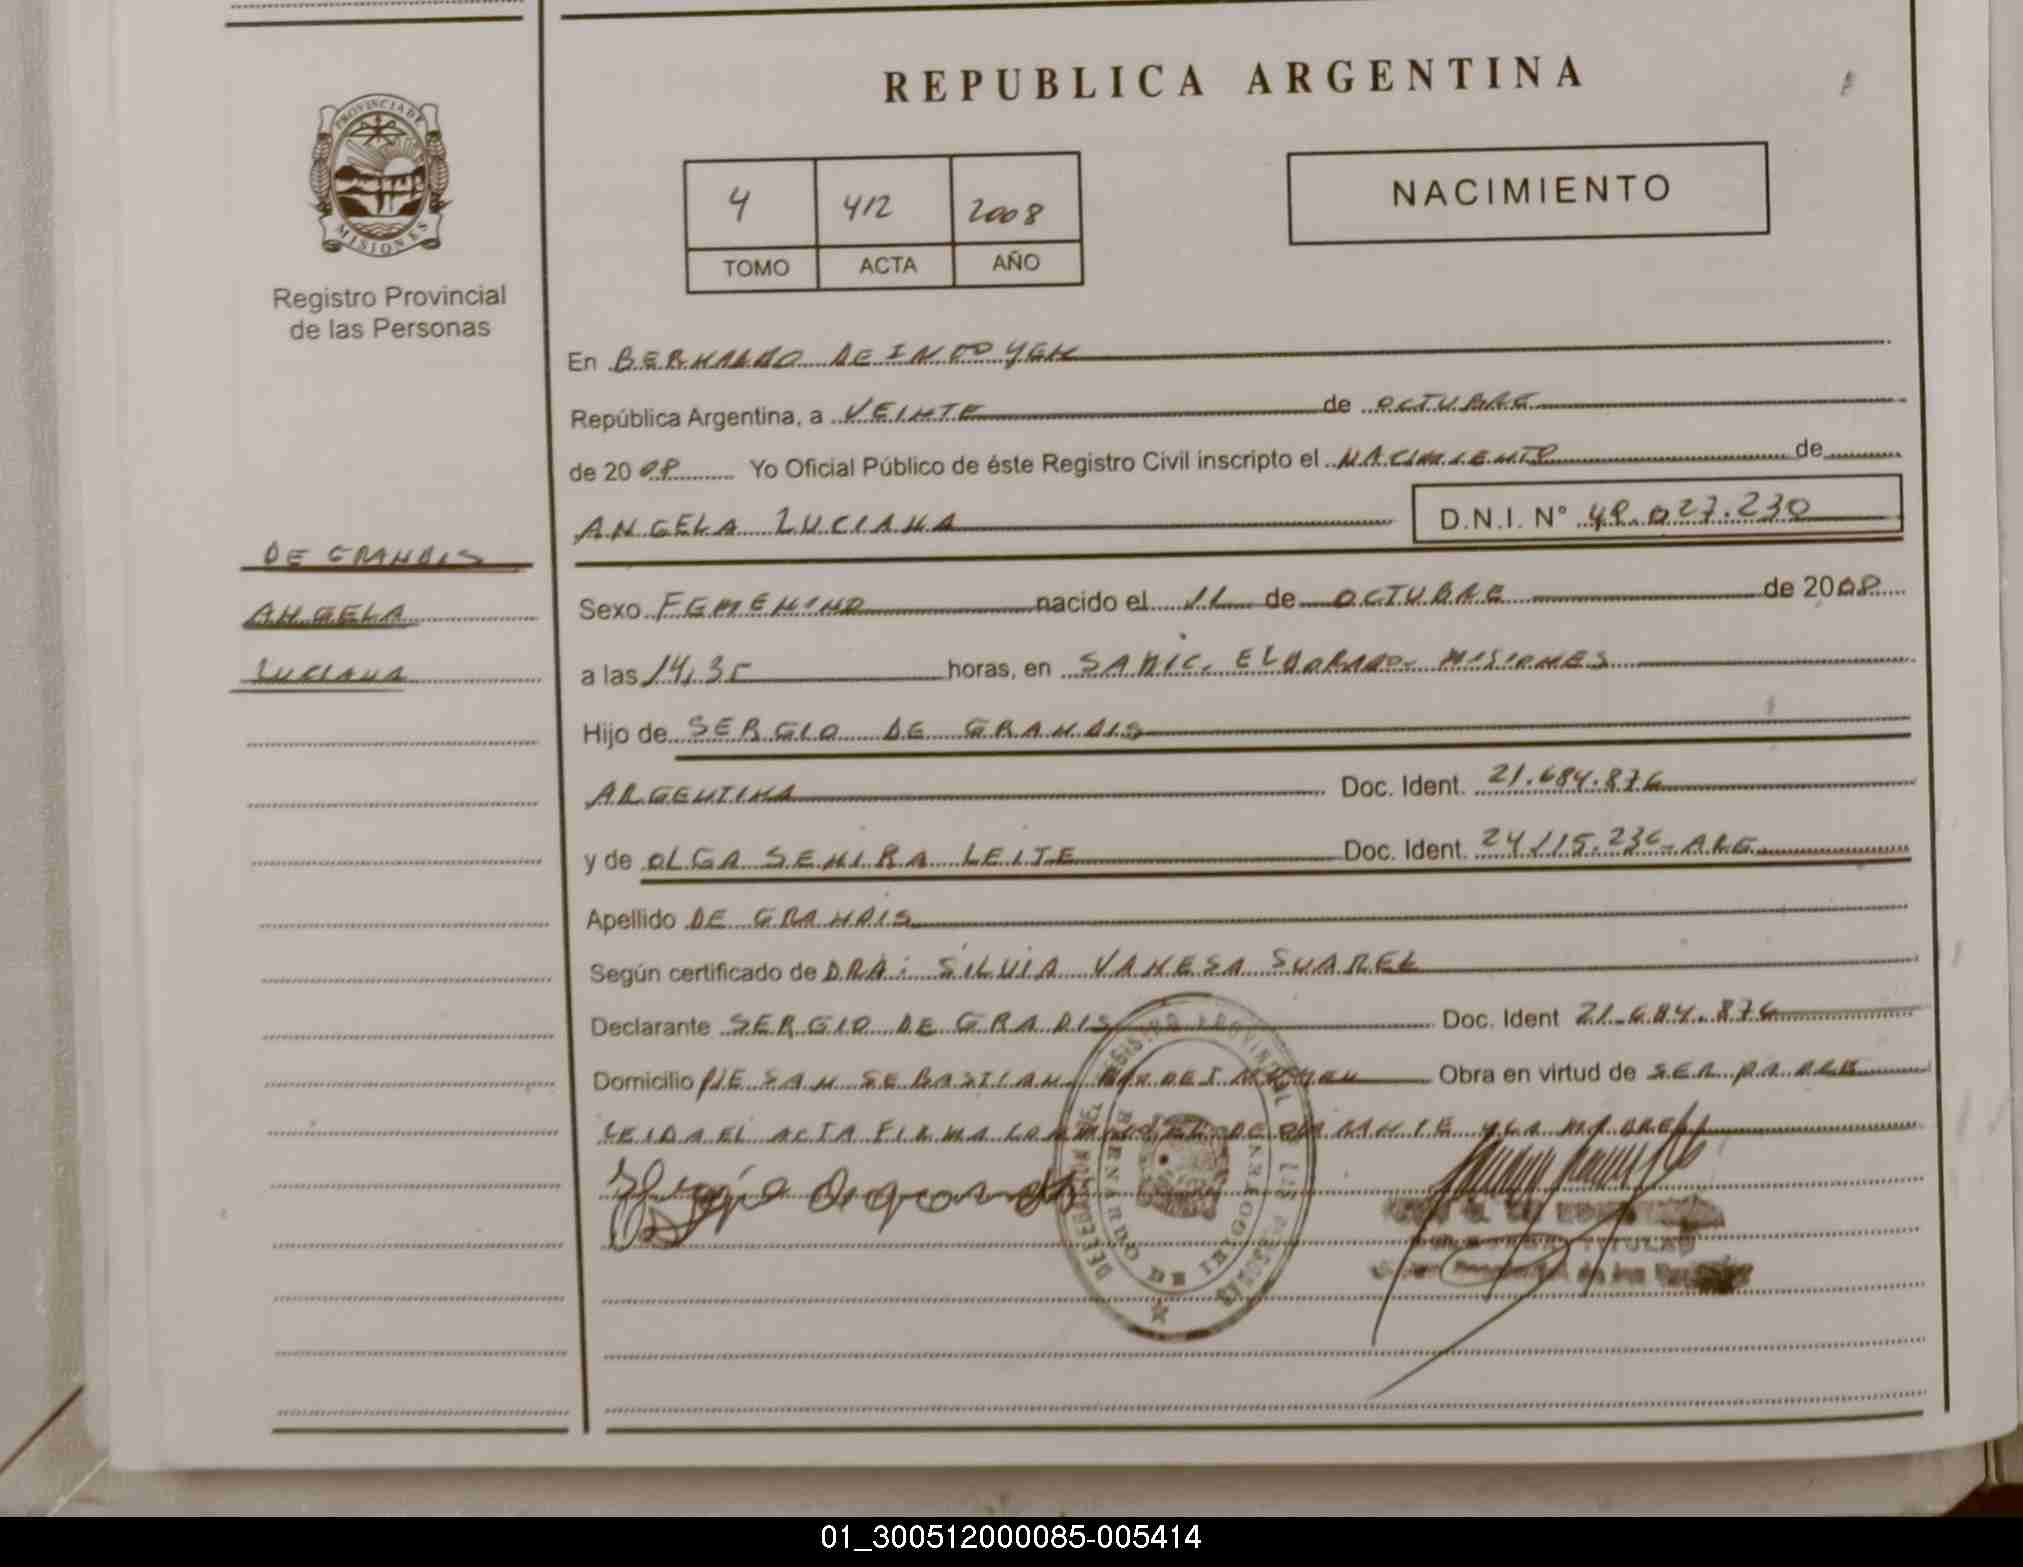 REPUBLICA ARGENTINA
PROVINCIA DE
MISIONES
Registro Provincial
de las Personas
4 412 2008
TOMO ACTA AÑO
NACIMIENTO
En BERNARDO DE IRIGOYEN
República Argentina, a VEINTE de OCTUBRE
de 2008 Yo Oficial Público de éste Registro Civil inscripto el NACIMIENTO de
ANGELA LUCIANA D.N.I. N° 48.027.230
DE GRANDIS
ANGELA
LUCIANA
Sexo FEMENINO nacido el 11 de OCTUBRE de 2008
a las 14,35 horas, en SAMIC. ELDORADO. MISIONES
Hijo de SERGIO DE GRANDIS
ARGENTINA Doc. Ident. 21.684.876
y de OLGA SENIRA LEITE Doc. Ident. 24.115.236-ARG
Apellido DE GRANDIS
Según certificado de DRA: SILVIA VANESA SUAREZ
Declarante SERGIO DE GRADIS Doc. Ident 21.684.876
Domicilio PJE SAN SEBASTIAN Obra en virtud de SER PADRE
LEIDA EL ACTA FIRMA Y LA MADRE
REGISTRO PROVINCIAL DE LAS PERSONAS
BERNARDO DE IRIGOYEN
TITULAR
de las
01_300512000085-005414